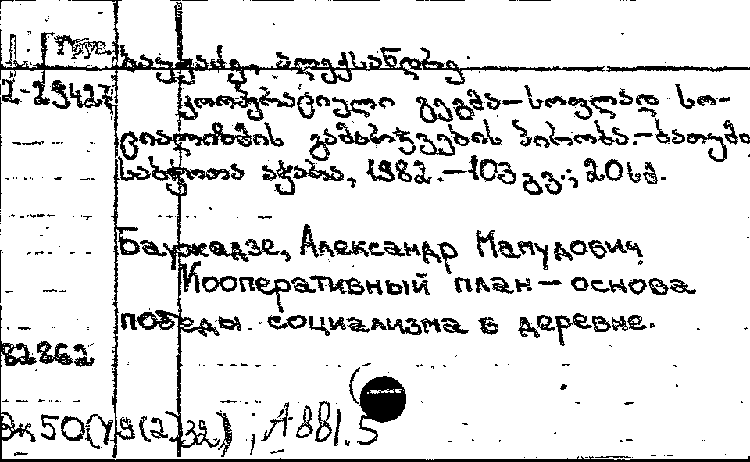 Груз.
ბაუჟაძე, ალექსანდრე.
2-29427 კოოპერაციული გეგმა – სოფლად სო-
ციალიზმის გამარჯვების პირობა. – ბათუმი,
საბჭოთა აჭარა, 1982. – 103 გვ.; 20 სმ.
Баужадзе, Александр Мамудович
Кооперативный план – основа
победы социализма в деревне.
82862
50(49(2)32); А881.5